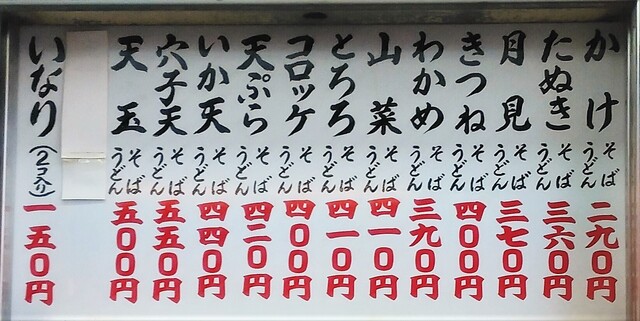 かけ そば うどん 二九〇円
たぬき そば うどん 三六〇円
月見 そば うどん 三七〇円
きつね そば うどん 四〇〇円
わかめ そば うどん 三九〇円
山菜 そば うどん 四一〇円
とろろ そば うどん 四一〇円
コロッケ そば うどん 四〇〇円
天ぷら そば うどん 四二〇円
いか天 そば うどん 四四〇円
穴子天 そば うどん 五五〇円
天玉 そば うどん 五〇〇円
いなり (2コ入り) 一五〇円